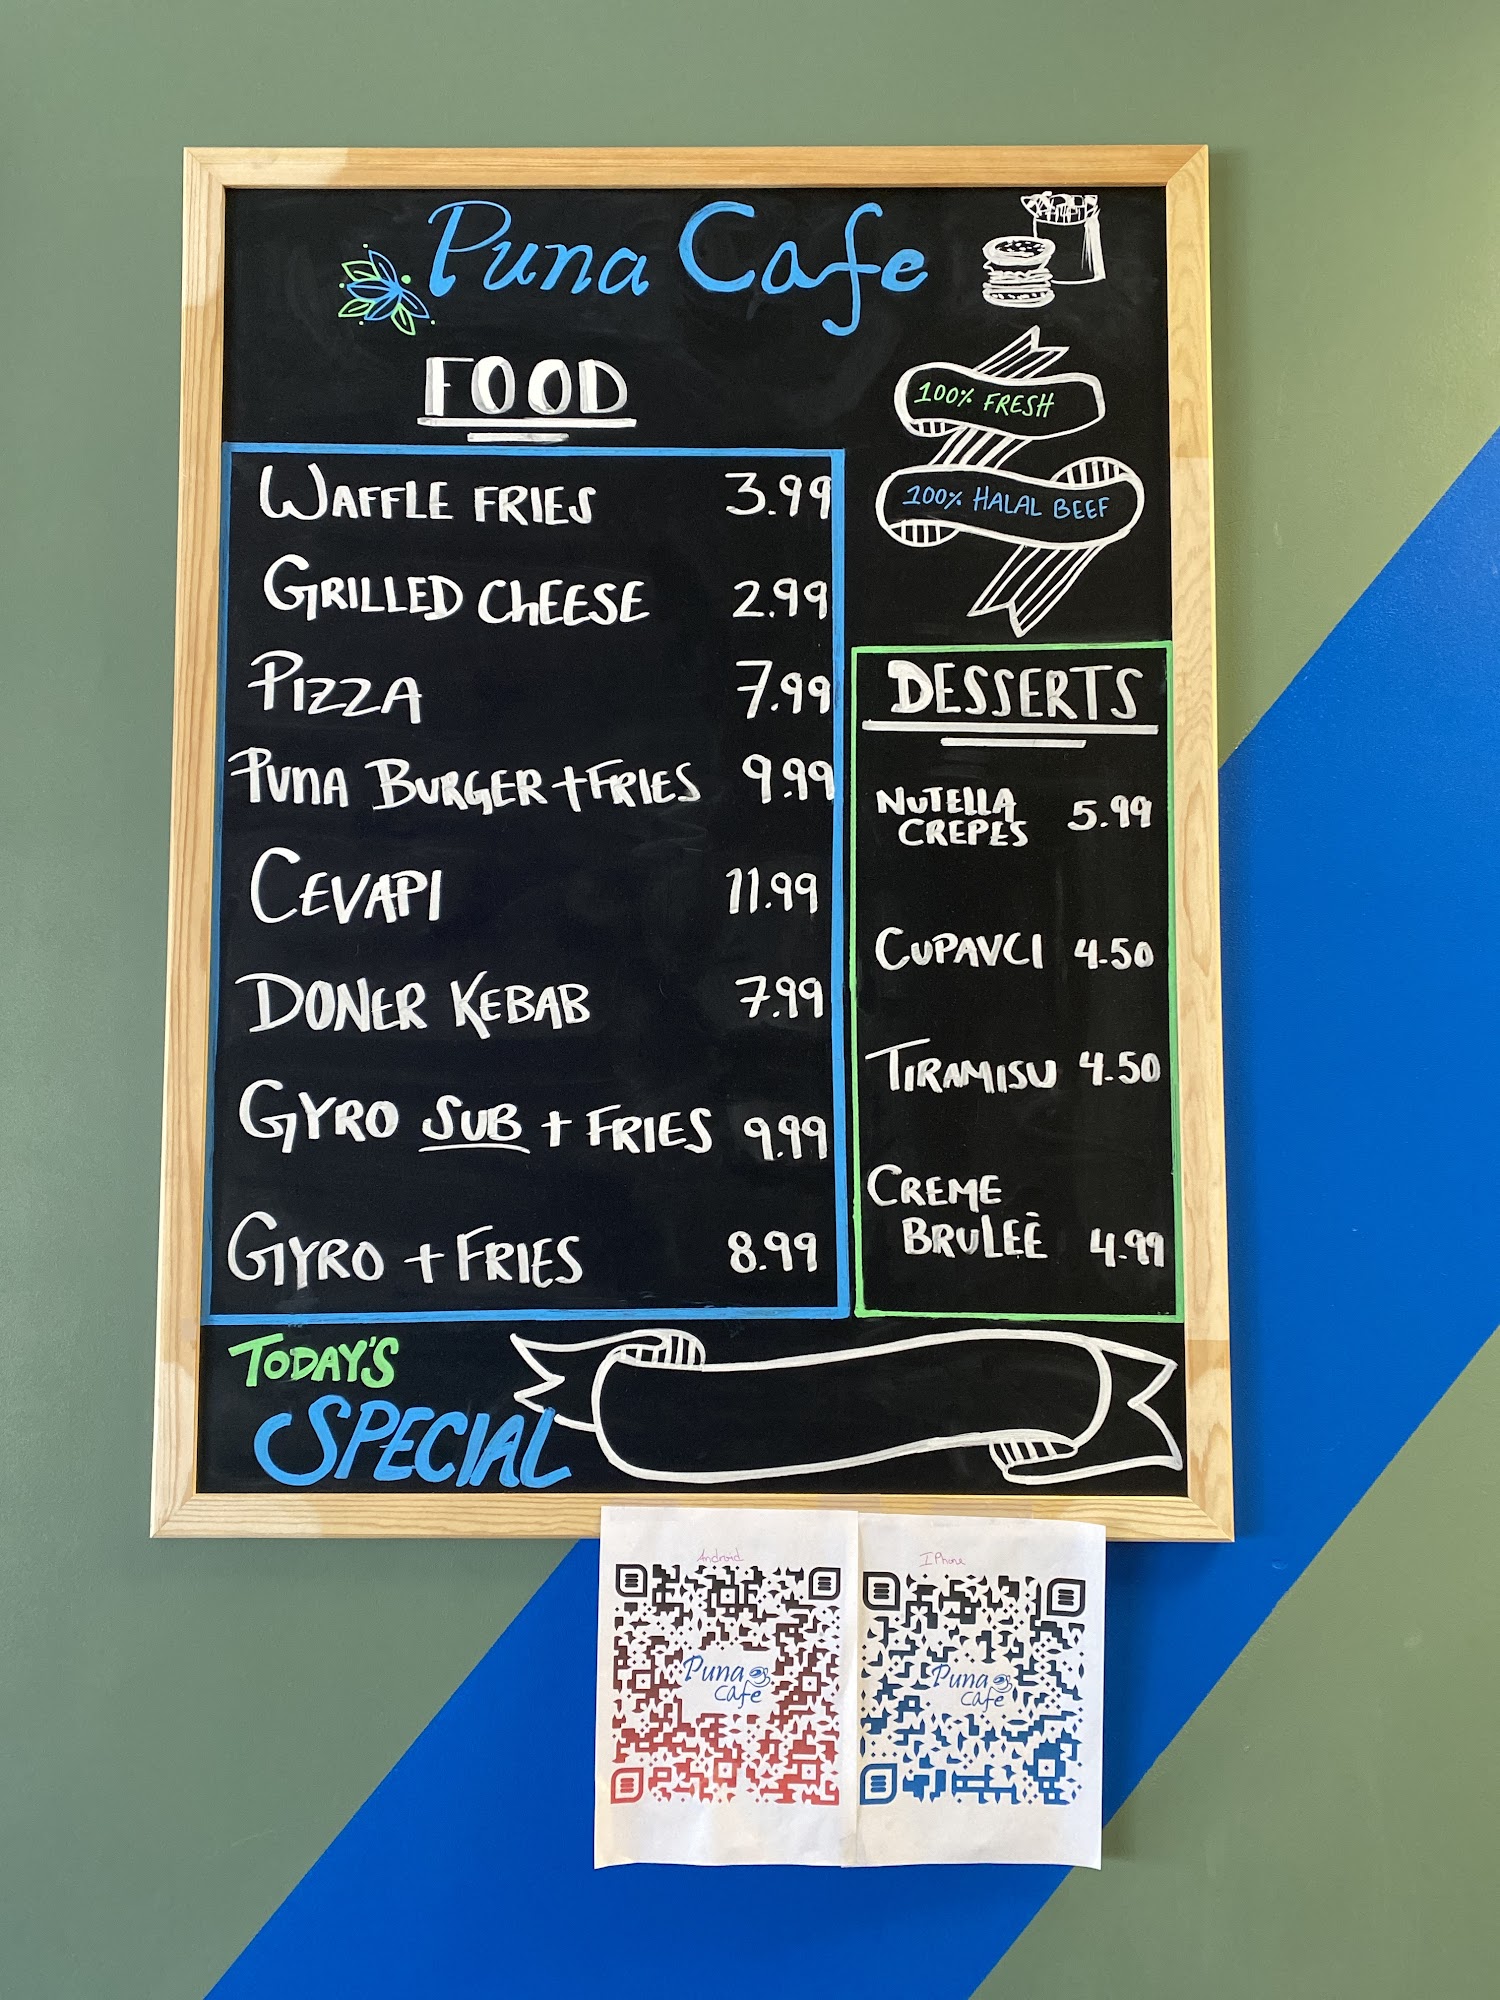 Puna Cafe
FOOD
WAFFLE FRIES 3.99
GRILLED CHEESE 2.99
PIZZA 7.99
PUNA BURGER + FRIES 9.99
CEVAPI 11.99
DONER KEBAB 7.99
GYRO SUB + FRIES 9.99
GYRO + FRIES 8.99
100% FRESH
100% HALAL BEEF
DESSERTS
NUTELLA
CREPES 5.99
CUPAVCI 4.50
TIRAMISU 4.50
CREME
BRULEÈ 4.99
TODAY'S
SPECIAL
Android
Puna
Cafe
IPhone
Puna
Cafe